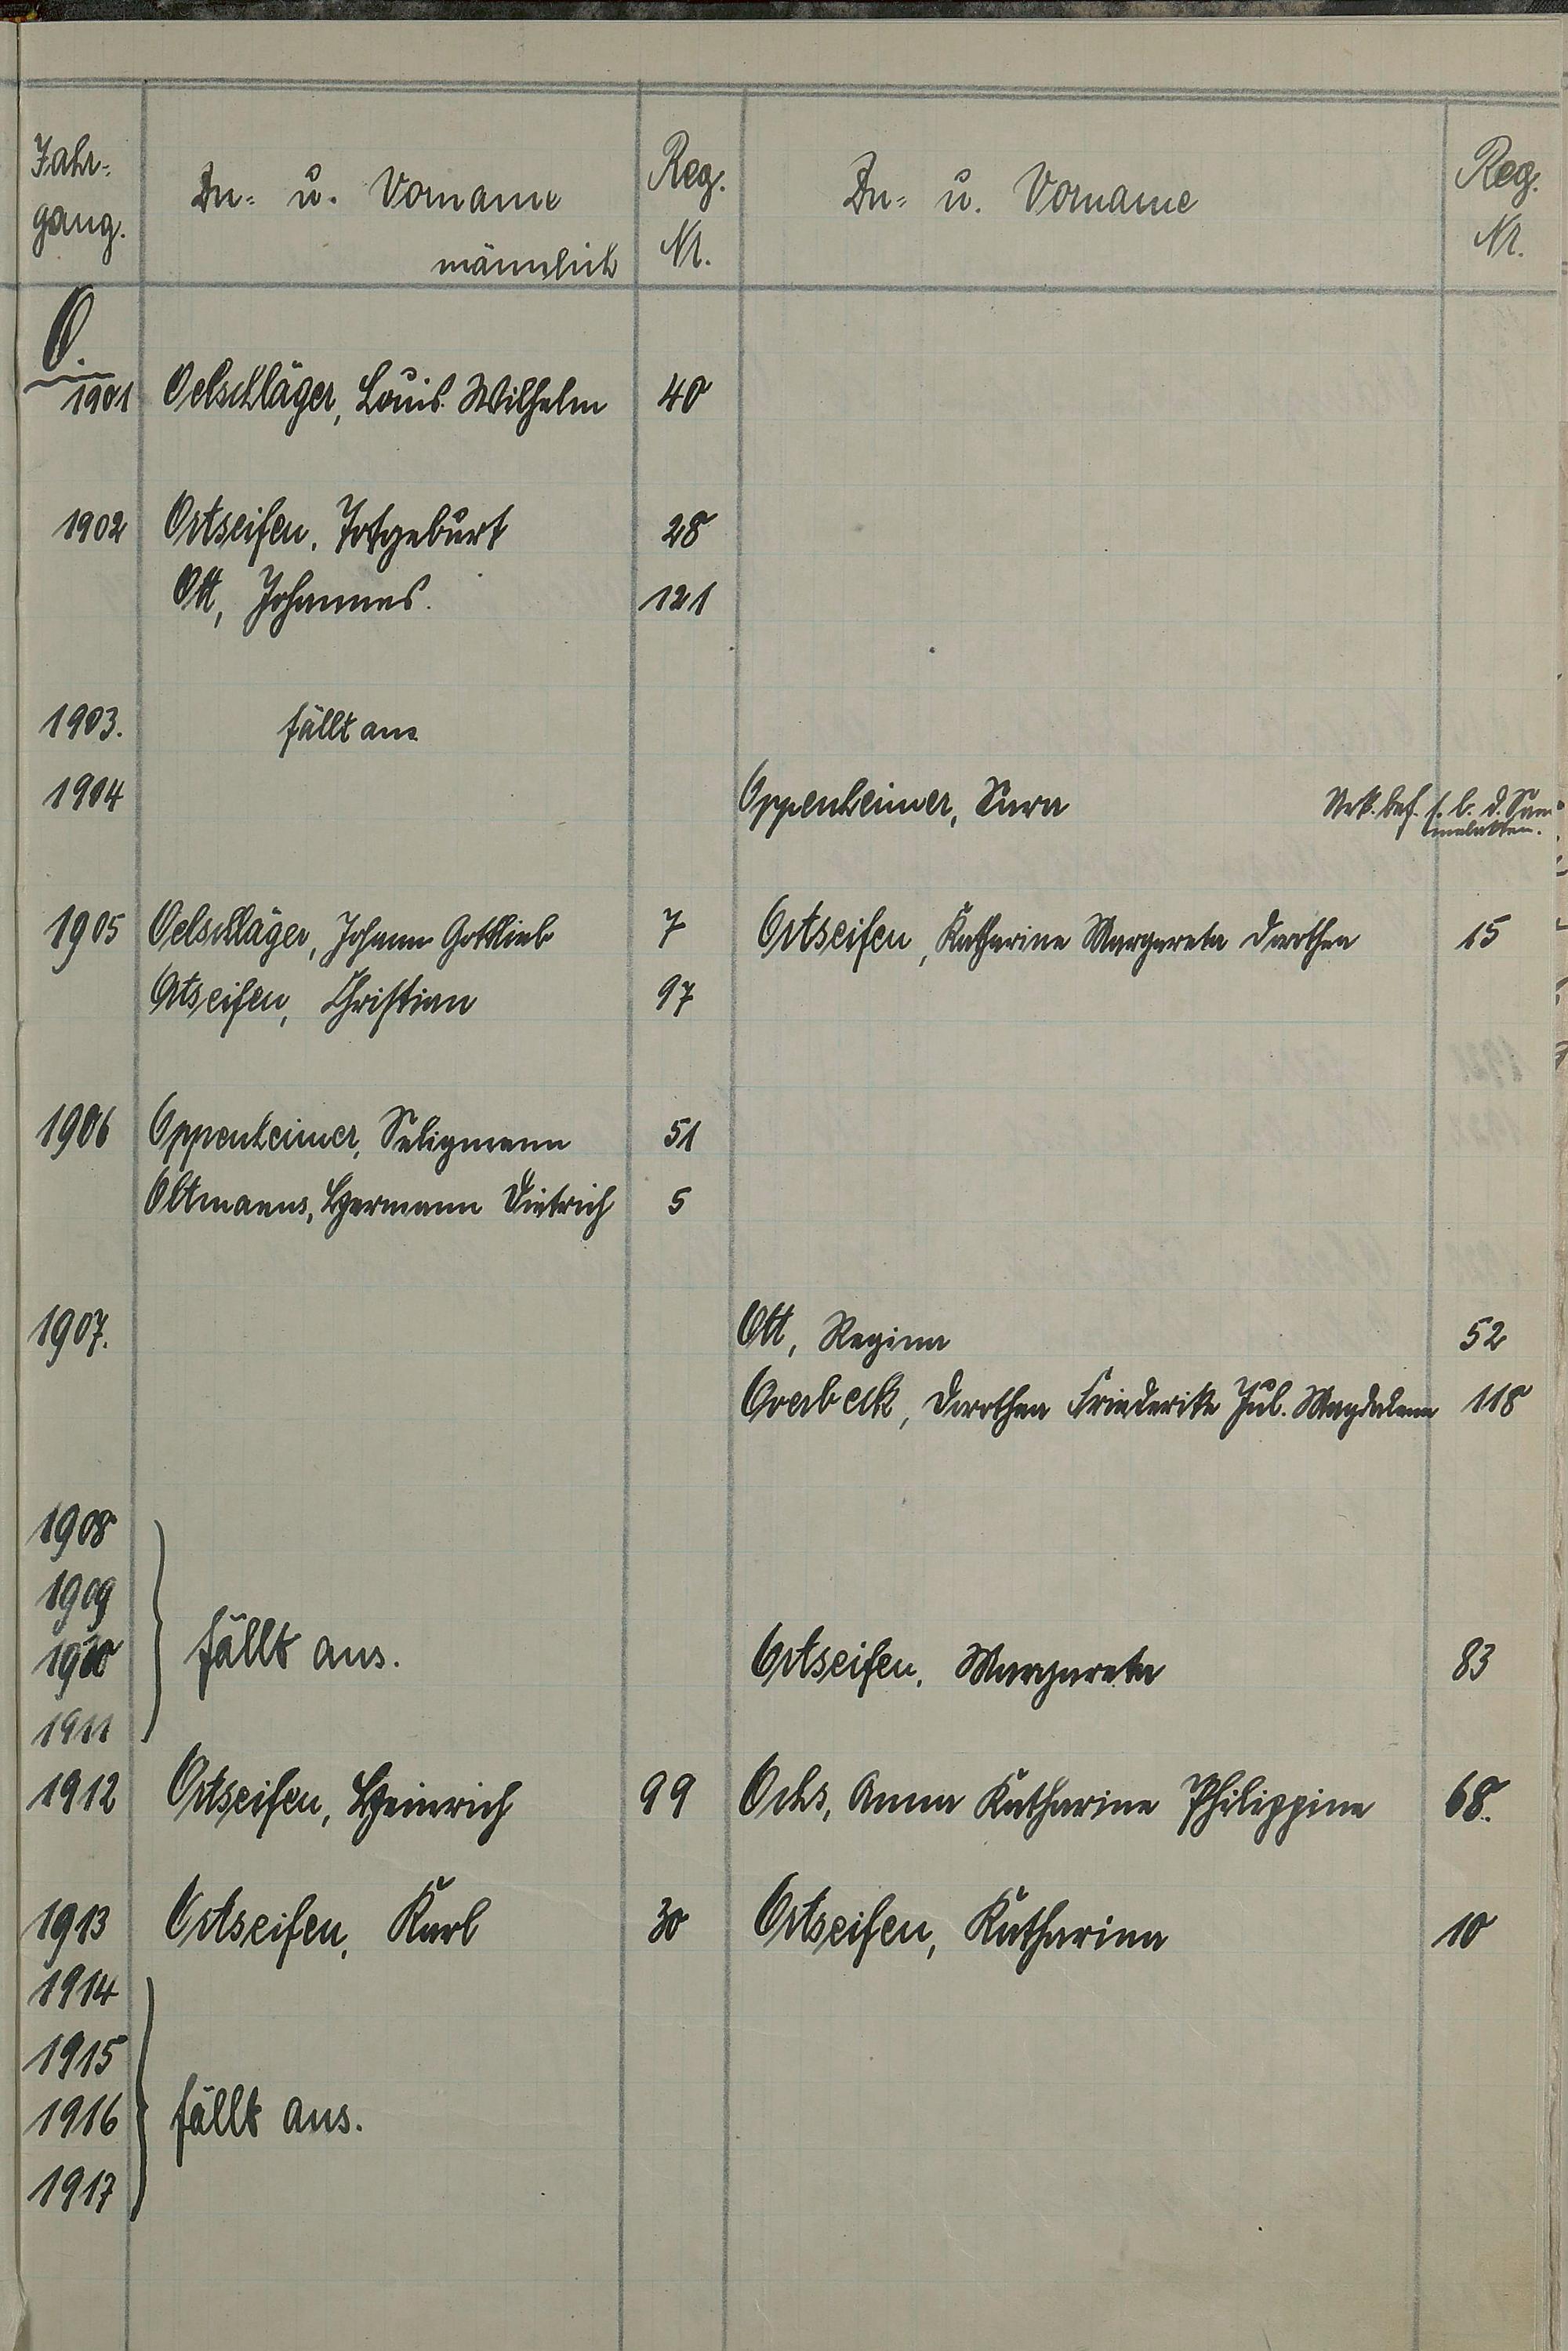 Jahr-
gang.
Zu- u. Vorname
männlich
Reg.
Nr.
Zu- u. Vorname
Reg.
Nr.
O.
1901 Oelschläger, Louis Wilhelm 40
1902 Ortseifen, Totgeburt 28
Ott, Johannes. 121
1903. fällt aus
1904 Oppenheimer, Sara Urk. bef. s. b. d.
1905 Oelschläger, Johann Gottlieb 7 Ortseifen, Katharine Margareta Dorothea 15
Ortseifen, Christian 97
1906 Oppenheimer, Seligmann 51
Oltmanns, Hermann Dietrich 5
1907. Ott, Regina 52
Overbeck, Dorothea Friederike Jul. Magdalena 118
1908
1909
1910 fällt aus. Ortseifen, Margareta 83
1911
1912 Ortseifen, Heinrich 99 Ochs, Anna Katharine Philippine 68.
1913 Ortseifen, Karl 30 Ortseifen, Katharina 10
1914
1915
1916 fällt aus.
1917